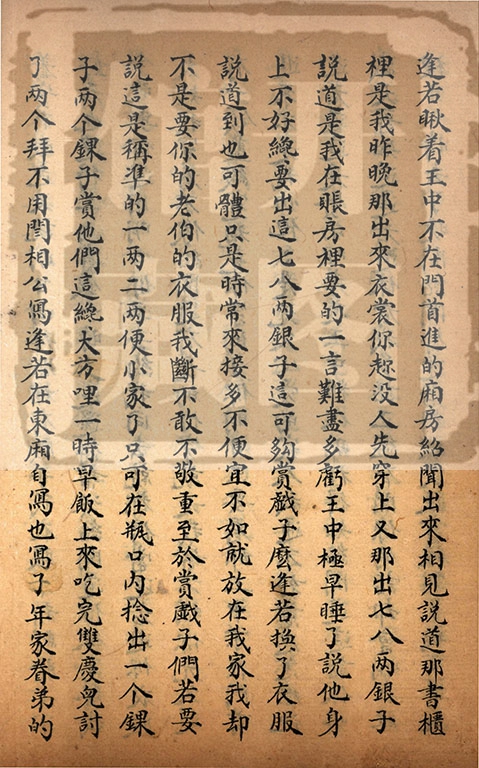 逢若瞅着王中不在門首進的廂房紹聞出來相見說道那書櫃
裡是我昨晚那出來衣裳你趂没人先穿上又那出七八兩銀子
說道是我在賬房裡要的一言難盡多虧王中極早睡了說他身
上不好總要出這七八兩銀子這可夠賞戲子麼逢若換了衣服
說道到也可體只是時常來接多不便宜不如就放在我家我却
不是要你的老伯的衣服我斷不敢不敬重至於賞戲子們若要
說這是稱準的一两二两便小家了只可在瓶口内捻出一个錁
子两个錁子賞他們這總大方哩一時早飯上來吃完雙慶兒討
了两个拜不用閆相公寫逢若在東廂自寫也寫了年家眷弟的